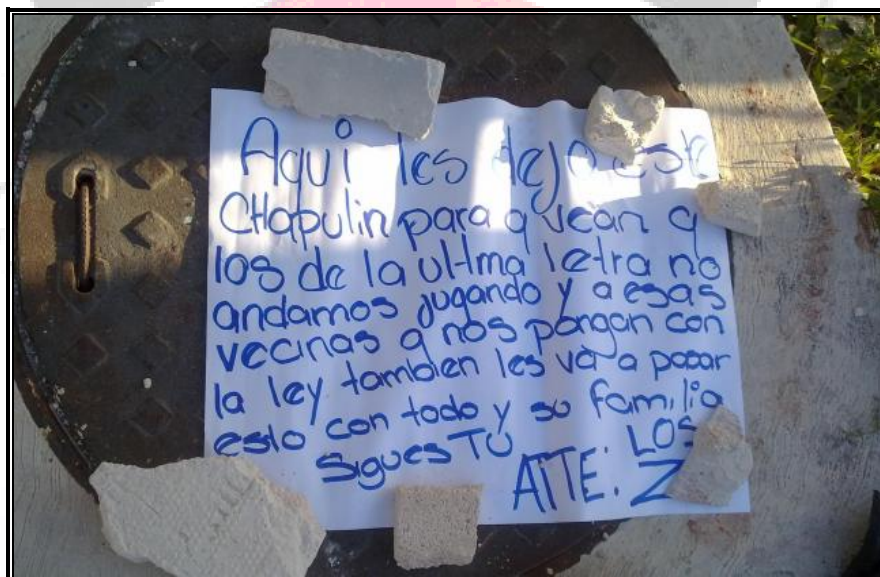 Aqui les dejo este
CHapulin para q vean q
los de la ultma letra no
andamos jugando y a esas
vecinas q nos pongan con
la ley tambien les va a pasar
esto con todo y su familia
sigues TU
ATTE: LOS
Z